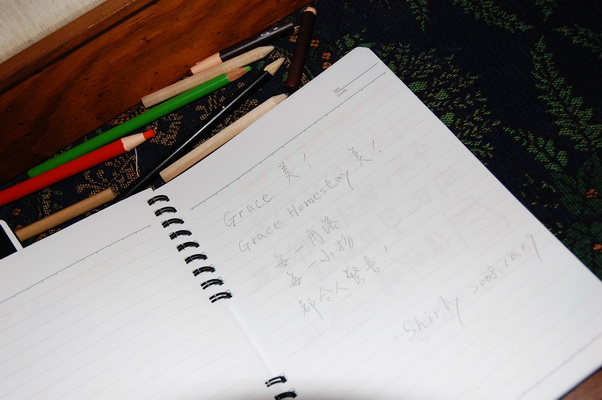 Grace 美!
Grace Homestay 美!
每一角落
每一小物
都令人驚喜!
Shirly 2008.10.17